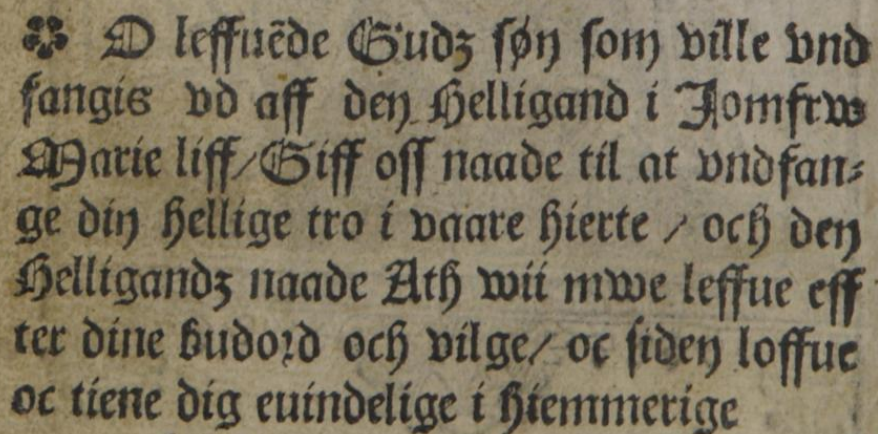 O leffuēde Gudz søn som ville vnd
fangis vd aff den Helligand i Jomfrw
Marie liff/Giff oss naade til at vndfan⸗
ge din hellige tro i vaare hierte / och den
Helligandz naade Ath wii mwe leffue eff
ter dine budord och vilge/ oc siden loffue
oc tiene dig euindelige i hiemmerige